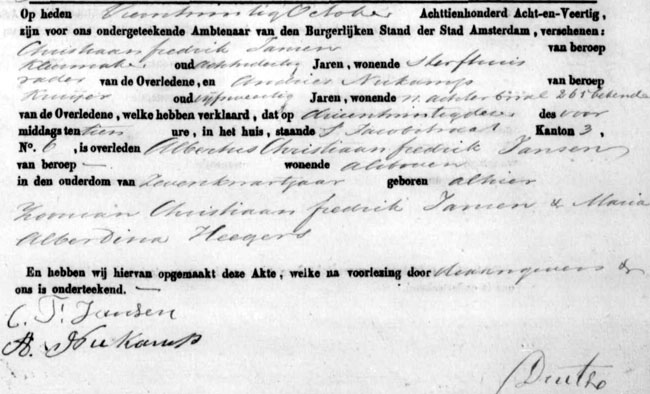 Op heden Vierentwintig October Achttienhonderd Acht-en-Veertig,
zijn voor ons ondergeteekende Ambtenaar van den Burgerlijken Stand der Stad Amsterdam, verschenen:
Christiaan fredrik Jansen van beroep
oud achtendertig Jaren, wonende Sterfhuis
vader van de Overledene, en Andries Nukamp van beroep
Kruijer oud vijfenveertig Jaren, wonende 265 bekende
van de Overledene, welke hebben verklaard, dat op drieentwintig dezer des voor
middags ten tien ure, in het huis, staande St Jacobstraat Kanton 3,
No. 6, is overleden Albertus Christiaan fredrik Jansen
van beroep — wonende aldaar
in den ouderdom van Zevenkwartjaar geboren alhier
Zoon van Christiaan fredrik Jansen & Maria
Alberdina Heegers
En hebben wij hiervan opgemaakt deze Akte, welke na voorlezing door de aangevers &
ons is onderteekend. —
C. F. Jansen
A. Nukamp